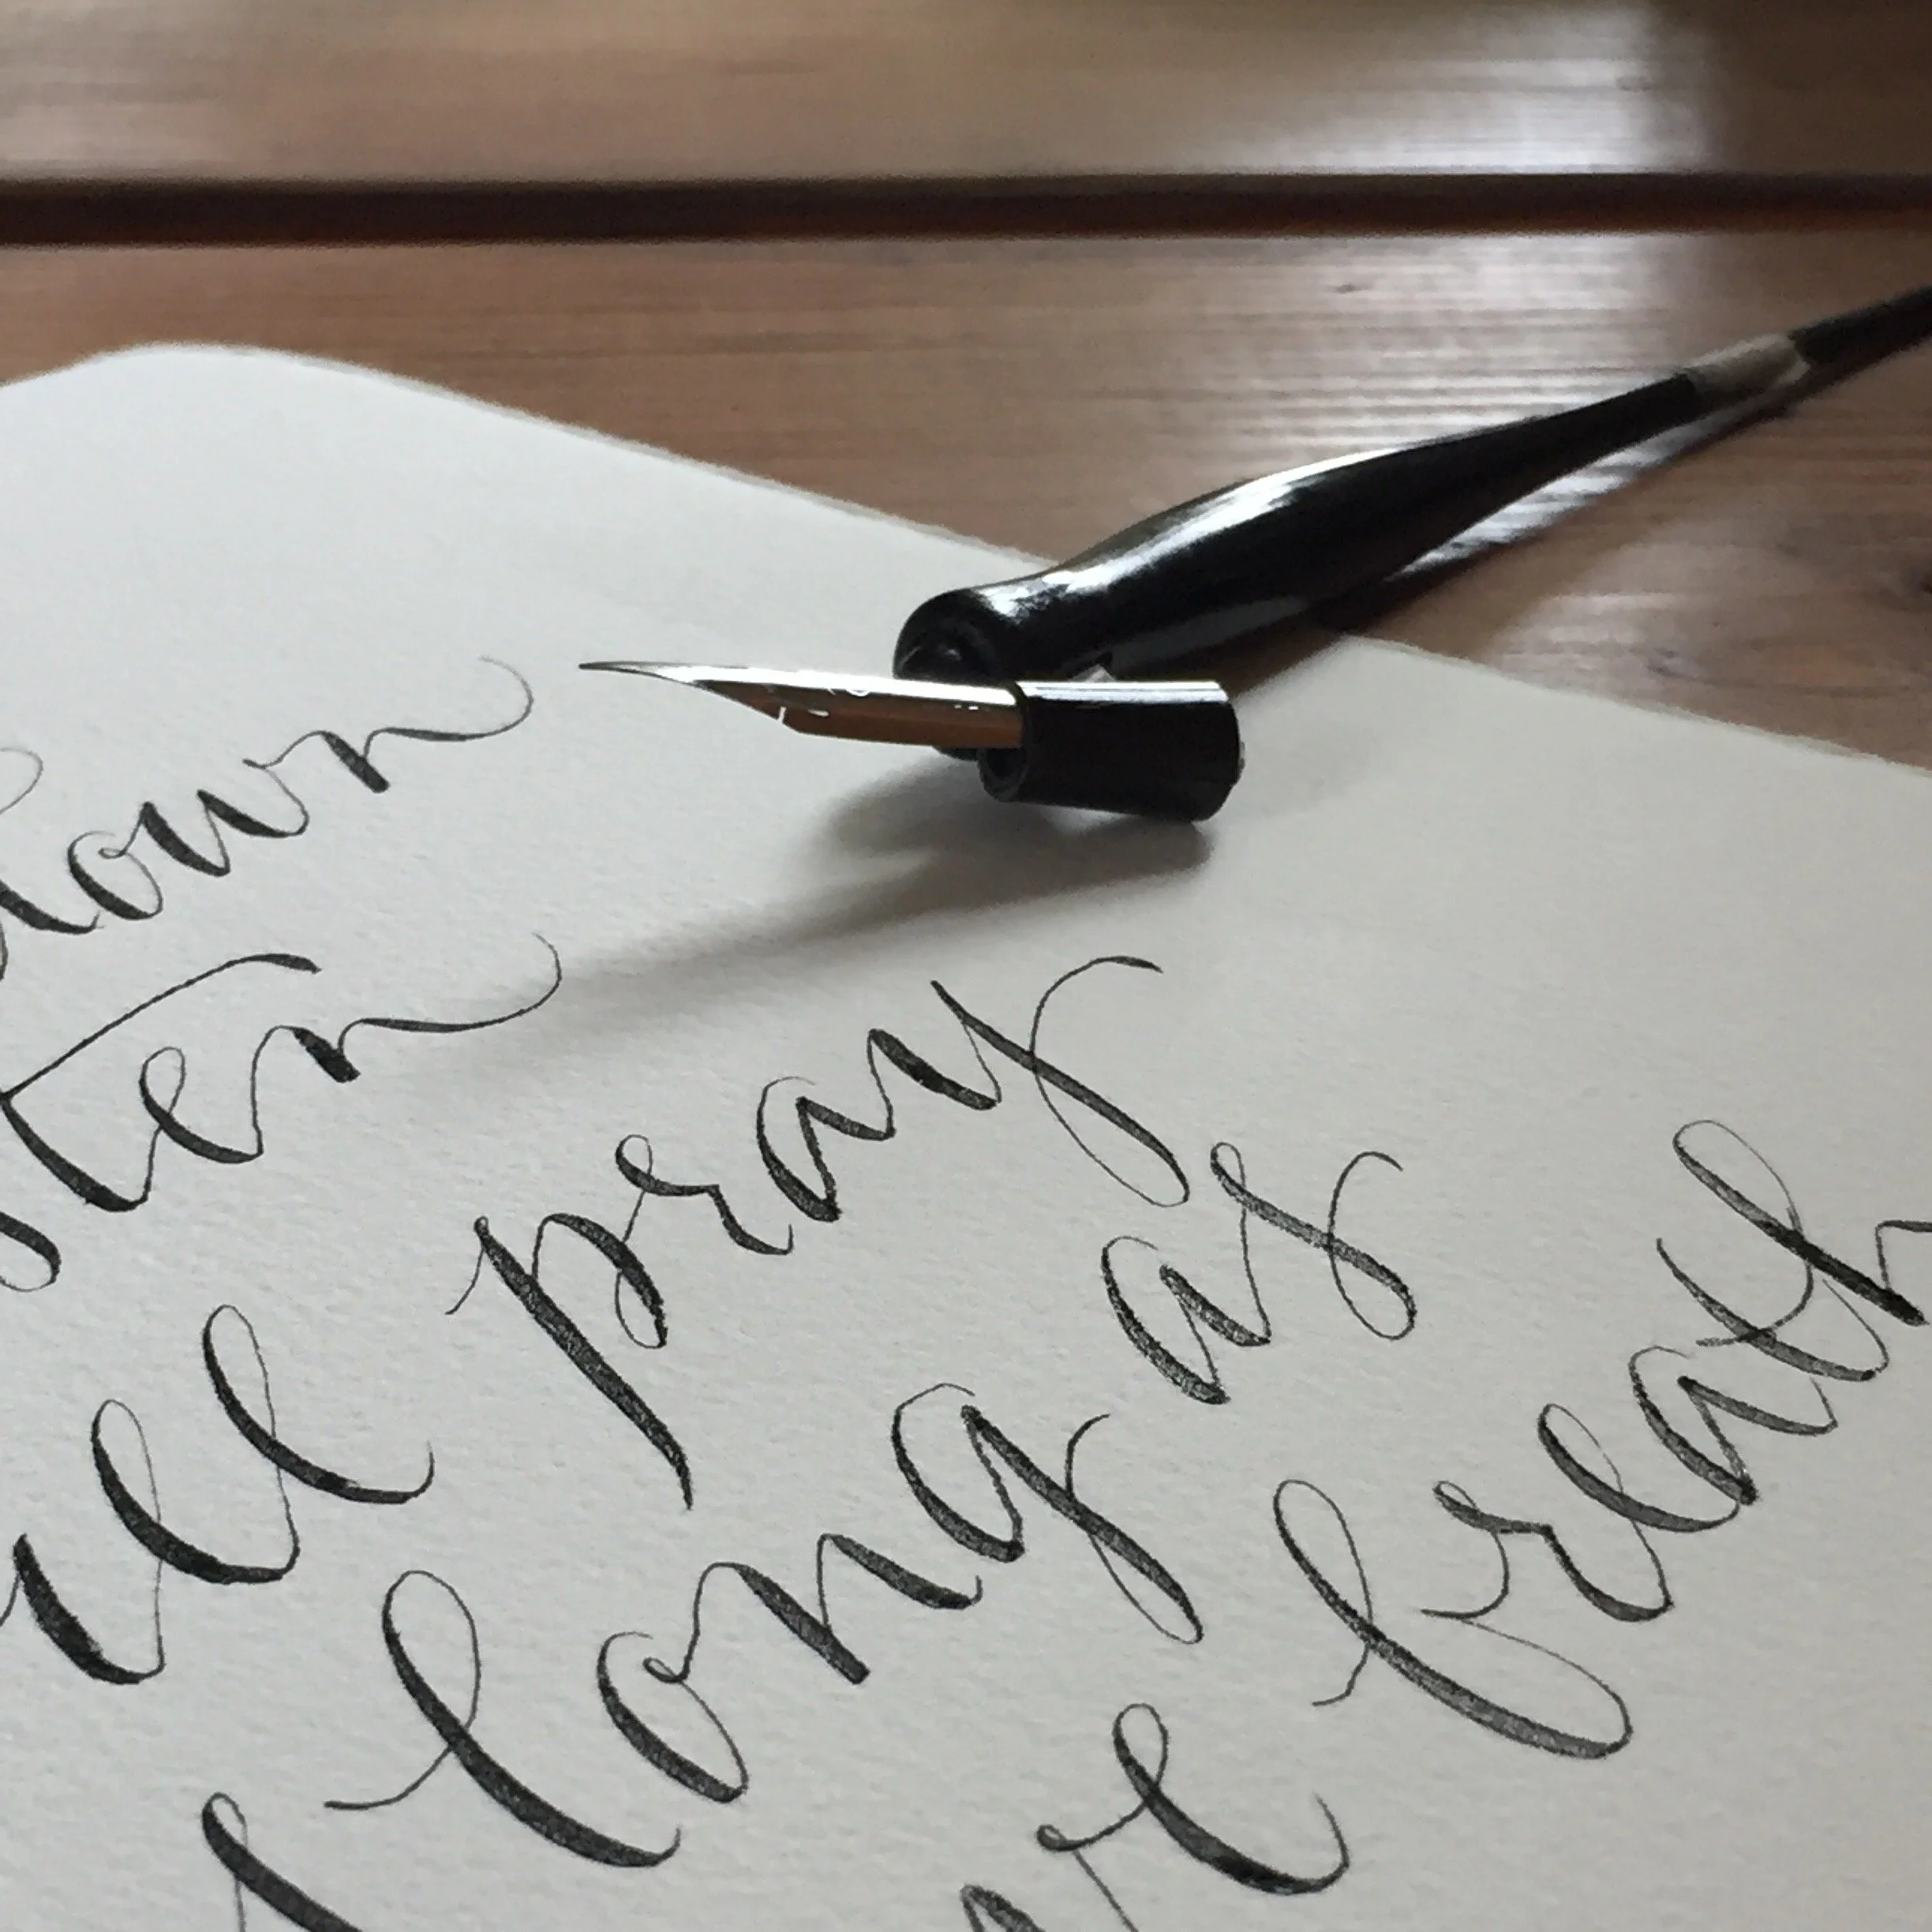 down
sten
ill pray
long as
ve breath